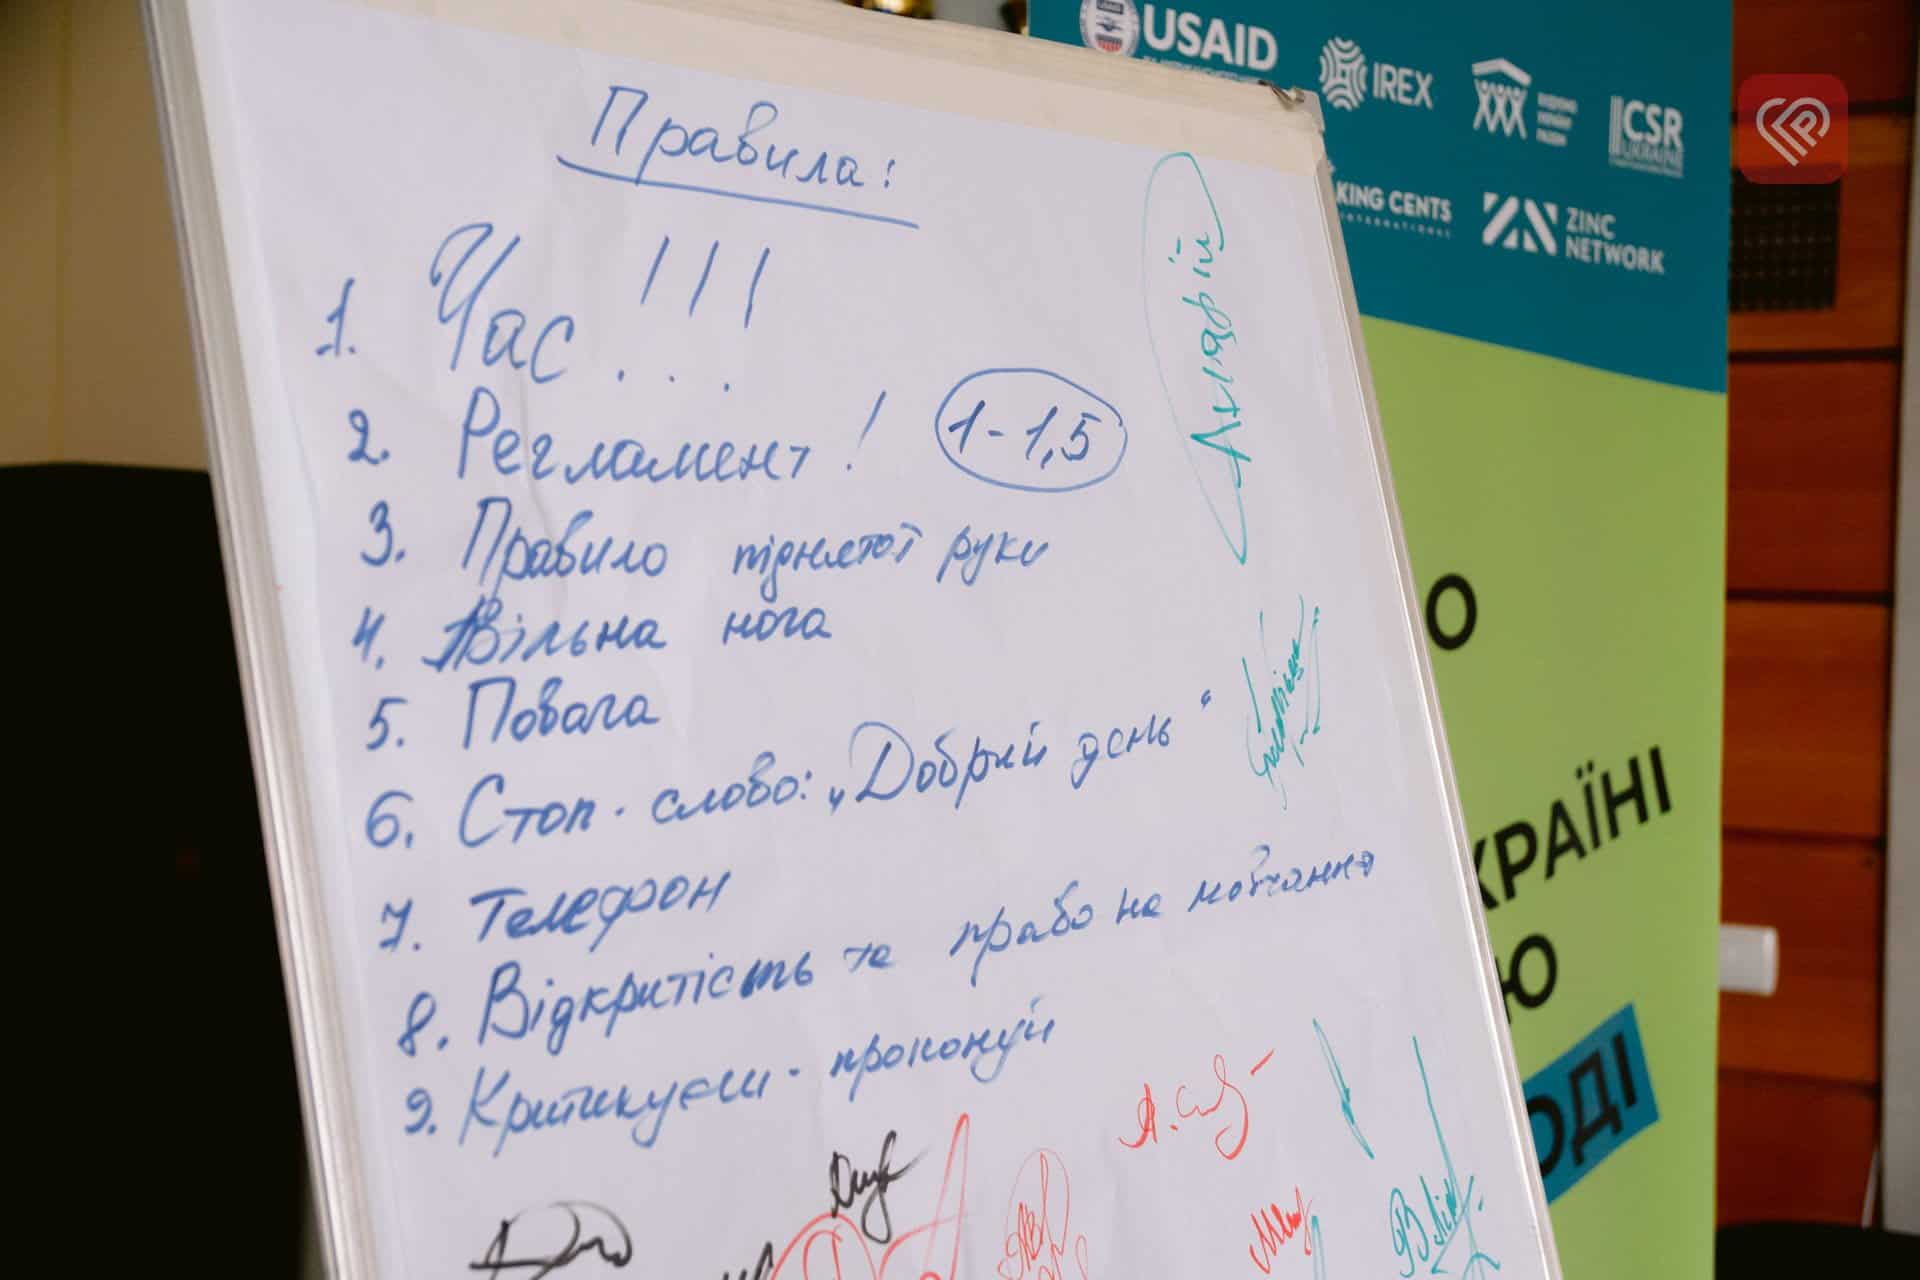 Правила:
1. Час !!!
2. Регламент! 1-1,5
3. Правило піднятої руки
4. Вільна нога
5. Повага
6. Стоп-слово: „Добрий день“
7. Телефон
8. Відкритість та право на мовчання
9. Критикуєш - пропонуй
Андрій
USAID
IREX
CSR
UKRAINE
KING CENTS
INTERNATIONAL
ZINC
NETWORK
О
КРАЇНІ
Ю
ОДІ